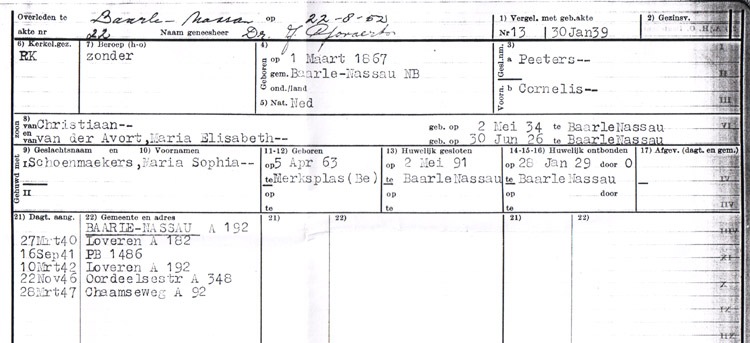 Overleden te Baarle-Nassau op 22-8-52
akte nr 22 Naam geneesheer Dr. J.
1) Vergel. met geb.akte
Nr 13 30Jan39
2) Gezinsv.
6) Kerkel.gez.
RK
7) Beroep (h-o)
zonder
4)
Geboren
op 1 Maart 1867
gem. Baarle-Nassau NB
ond./land
5) Nat. Ned
3)
Gesl.nm. a Peeters--
Voorn. b Cornelis--
8)
zoon van Christiaan-- geb. op 2 Mei 34 te BaarleNassau
en van der Avort,Maria Elisabeth-- geb. op 30 Jun 26 te BaarleNassau
Gehuwd met
9) Geslachtsnaam en 10) Voornamen
11-12) Geboren
13) Huwelijk gesloten
14-15-16) Huwelijk ontbonden
17) Afgev. (dagt. en gem.)
I Schoenmaekers,Maria Sophia-- op 5 Apr 63 op 2 Mei 91 op 28 Jan 29 door O
te Merksplas(Be) te BaarleNassau te BaarleNassau
II op op op door
te te te
21) Dagt. aang. 22) Gemeente en adres 21) 22) 21) 22)
BAARLE-NASSAU A 192
27Mrt40 Loveren A 182
16Sep41 PB 1486
10Mrt42 Loveren A 192
22Nov46 Oordeelsestr A 348
28Mrt47 Chaamseweg A 92